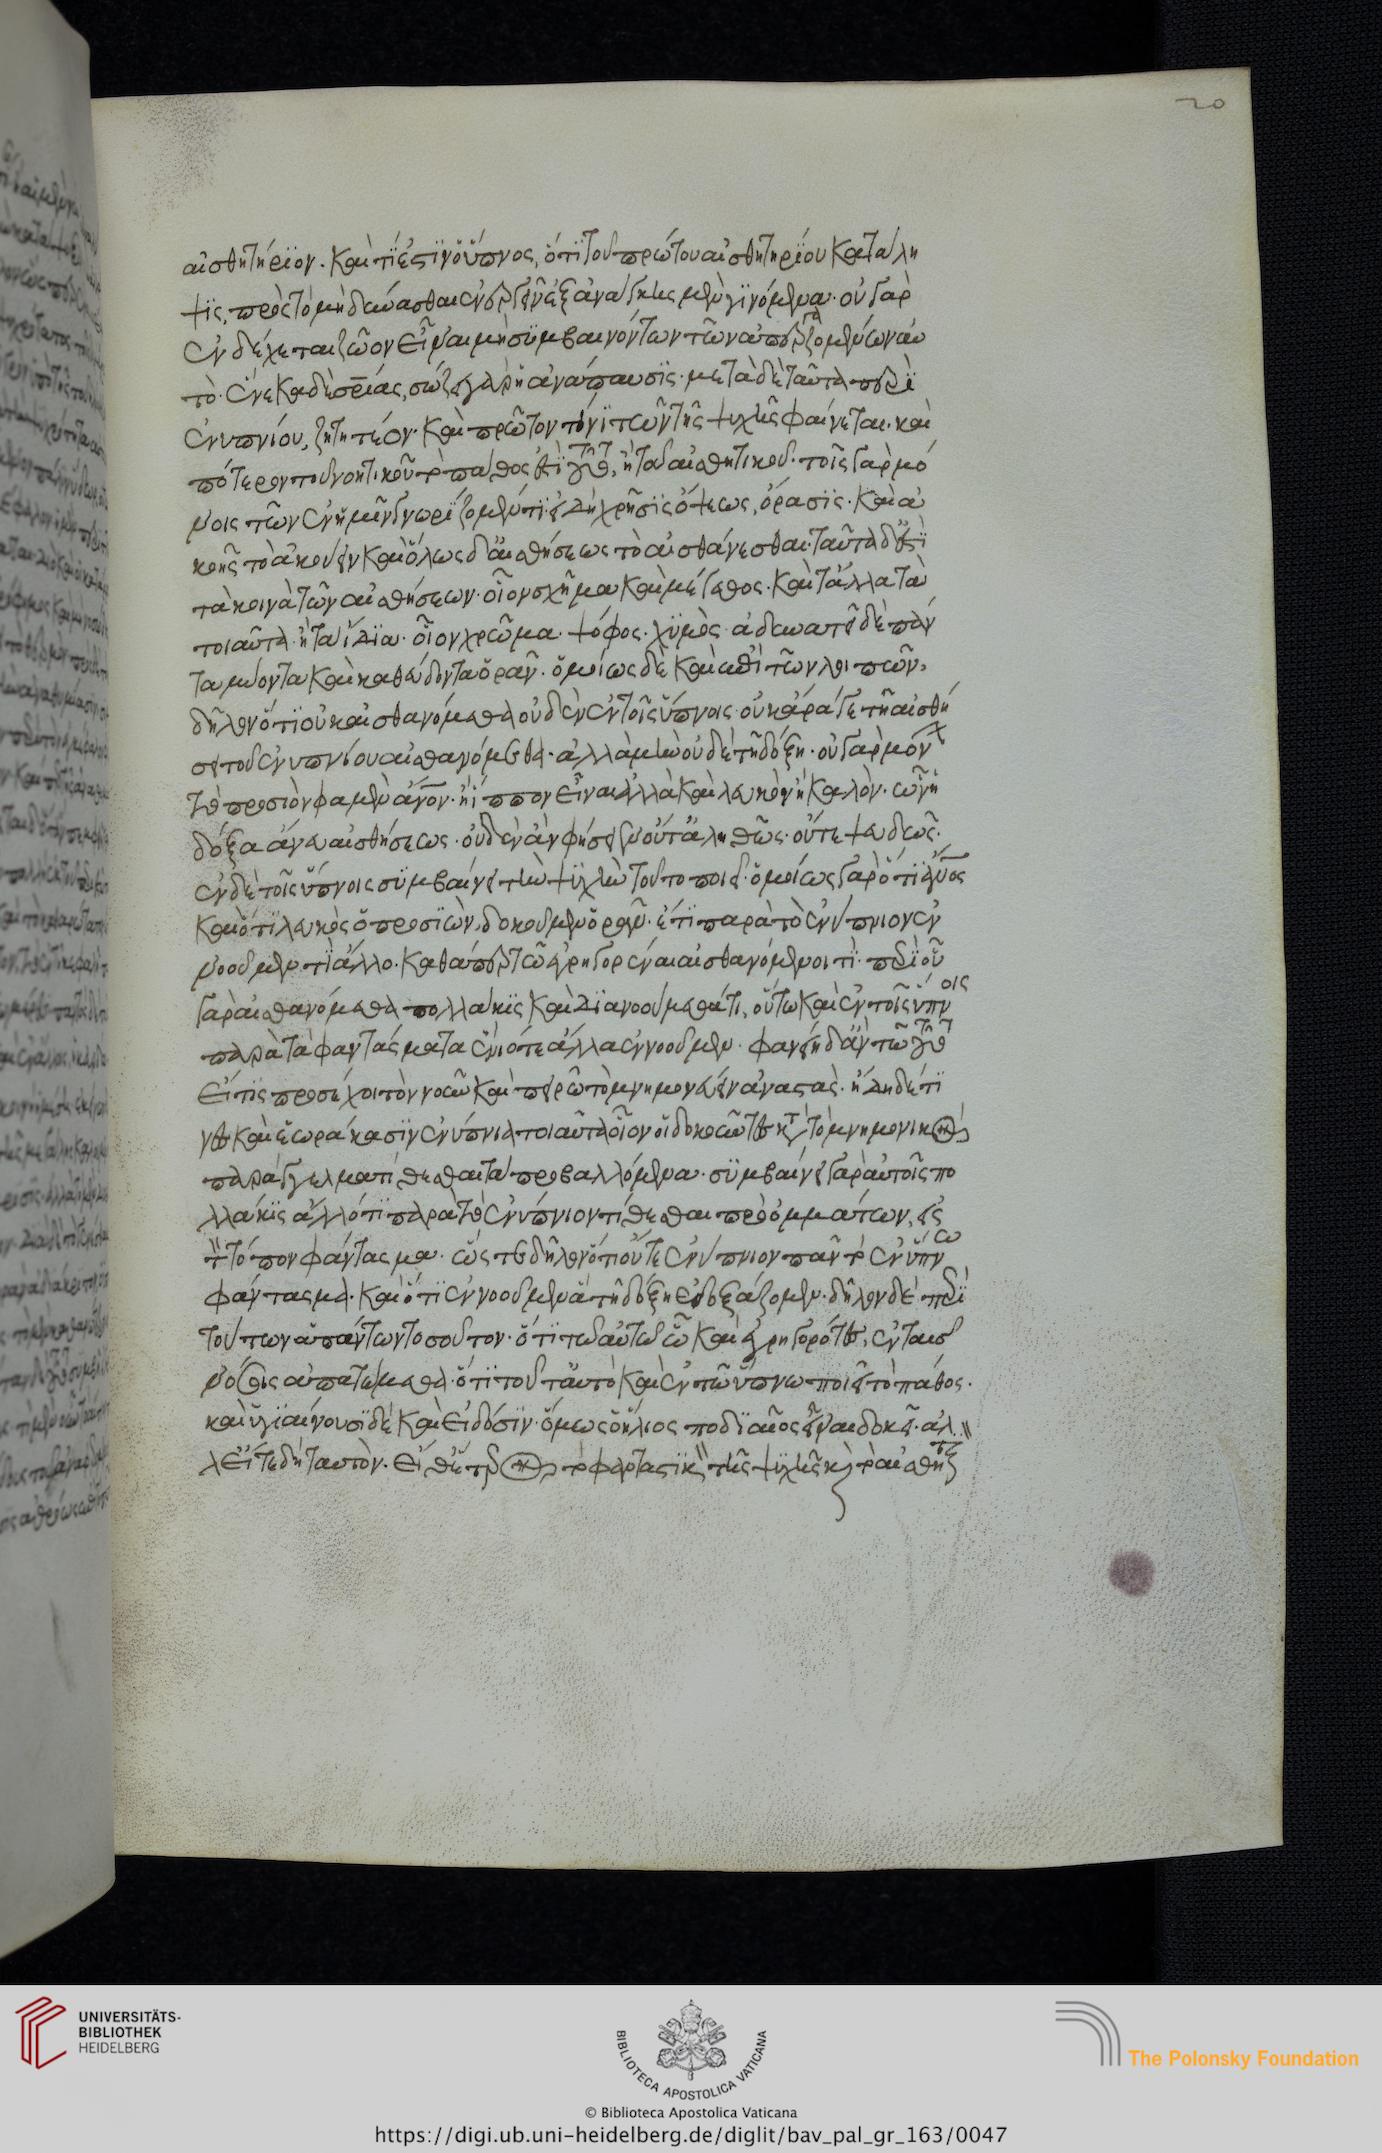 20
αἰσθητήριον. καὶ τί ἐστὶν ὁ ὕπνος, ὅτι τοῦ πρώτου αἰσθητηρίου κατάλη
ψις, πρὸς τὸ μὴ δύνασθαι ἐνεργεῖν ἐξ ἀνάγκης μὲν γινόμενα. οὐ γὰρ
ἐνδέχεται ζῶον εἶναι μὴ συμβαινόντων τῶν ἀπεργαζομένων αὐ
τό. ἕνεκα δὲ σωτηρίας, σώζει γὰρ ἡ ἀνάπαυσις. μετὰ δὲ ταῦτα περὶ
ἐνυπνίου, ζητητέον. καὶ πρῶτον τίνι τῶν τῆς ψυχῆς φαίνεται. καὶ
πότερον τοῦ νοητικοῦ τὸ πάθος ἐστὶ τοῦτο, ἢ τοῦ αἰσθητικοῦ. τοῖς γὰρ μό
νοις τῶν ἐν ἡμῖν γνωρίζομέν τι. εἰ δὴ χρῆσις ὄψεως, ὅρασις. καὶ ἀ
κοῆς τὸ ἀκούειν καὶ ὅλως δ' αἰσθήσεως τὸ αἰσθάνεσθαι. ταῦτα δ' ἐστὶ
τὰ κοινὰ τῶν αἰσθήσεων. οἷον σχῆμα καὶ μέγεθος. καὶ τἄλλα τὰ
τοιαῦτα. ἢ τὰ ἴδια. οἷον χρῶμα. ψόφος. χυμὸς. ἀδυνατεῖ δὲ πάν
τα μύοντα καὶ καθεύδοντα ὁρᾶν. ὁμοίως δὲ καὶ ἐπὶ τῶν λοιπῶν.
δῆλον ὅτι οὐκ αἰσθανόμεθα οὐδὲν ἐν τοῖς ὕπνοις. οὐκ ἄρα γε τῇ αἰσθή
σει τοῦ ἐνυπνίου αἰσθανόμεθα. ἀλλὰ μὴν οὐδὲ τῇ δόξῃ. οὐ γὰρ μόνον
τὸ προσιὸν φαμὲν ἄνον. ἢ ἵππον εἶναι ἀλλὰ καὶ λευκὸν ἢ καλόν. ὧν ἡ
δόξα ἄνευ αἰσθήσεως. οὐδὲν ἂν φήσειεν οὔτ' ἀληθῶς. οὔτε ψευδῶς.
ἐν δὲ τοῖς ὕπνοις συμβαίνει τὴν ψυχὴν τοῦτο ποιεῖν. ὁμοίως γὰρ ὅτι ἄνος
καὶ ὅτι λευκὸς ὁ προσιὼν, δοκοῦμεν ὁρᾶν. ἔτι παρὰ τὸ ἐνύπνιον ἐν
νοοῦμέν τι ἄλλο. καθάπερ τῶ ἐγρηγορέναι αἰσθανόμενοί τι. περὶ οὗ
γὰρ αἰσθανόμεθα πολλάκις καὶ διανοούμεθά τι, οὕτω καὶ ἐν τοῖς ὕπνοις
παρὰ τὰ φαντάσματα ἐνίοτε ἄλλα ἐννοοῦμεν. φανείη δ' ἄν τω τοῦτο
εἴ τις προσέχοι τὸν νοῦν καὶ πειρῶτο μνημονεύειν ἀναστάς. ἤδη δέ τι
νες καὶ ἑωράκασιν ἐνύπνια τοιαῦτα οἷον οἱ δοκοῦντες κατὰ τὸ μνημονικὸν
παράγγελμα τίθεσθαι τὰ προβαλλόμενα. συμβαίνει γὰρ αὐτοῖς πο
λλάκις ἄλλό τι παρὰ τὸ ἐνύπνιον τίθεσθαι πρὸ ὀμμάτων, εἰς
τὸν τόπον φάντασμα. ὥς τε δῆλον ὅτι οὔτε ἐνύπνιον πᾶν τὸ ἐν ὕπνω
φάντασμα. καὶ ὅτι ἐννοοῦμεν ἃ τῇ δόξῃ ἐδοξάζομεν. δῆλον δὲ περὶ
τούτων ἁπάντων τοσοῦτον. ὅτι τῶ αὐτῶ ὧ καὶ ἐγρηγορότες, ἐν ταῖς
νόσοις ἀπατώμεθα. ὅτι τοῦτ' αὐτὸ καὶ ἐν τῶ ὕπνω ποιεῖ τὸ πάθος.
καὶ ὑγιαίνουσι δὲ καὶ εἰδόσιν. ὅμως ὁ ἥλιος ποδιαῖος εἶναι δοκεῖ. ἀλ
λ' εἴτε δὴ ταυτὸν. εἴθ' ἕτερον τὸ φανταστικὸν τῆς ψυχῆς καὶ τὸ αἰσθητι
UNIVERSITÄTS-
BIBLIOTHEK
HEIDELBERG
BIBLIOTECA APOSTOLICA VATICANA
The Polonsky Foundation
© Biblioteca Apostolica Vaticana
https://digi.ub.uni-heidelberg.de/diglit/bav_pal_gr_163/0047